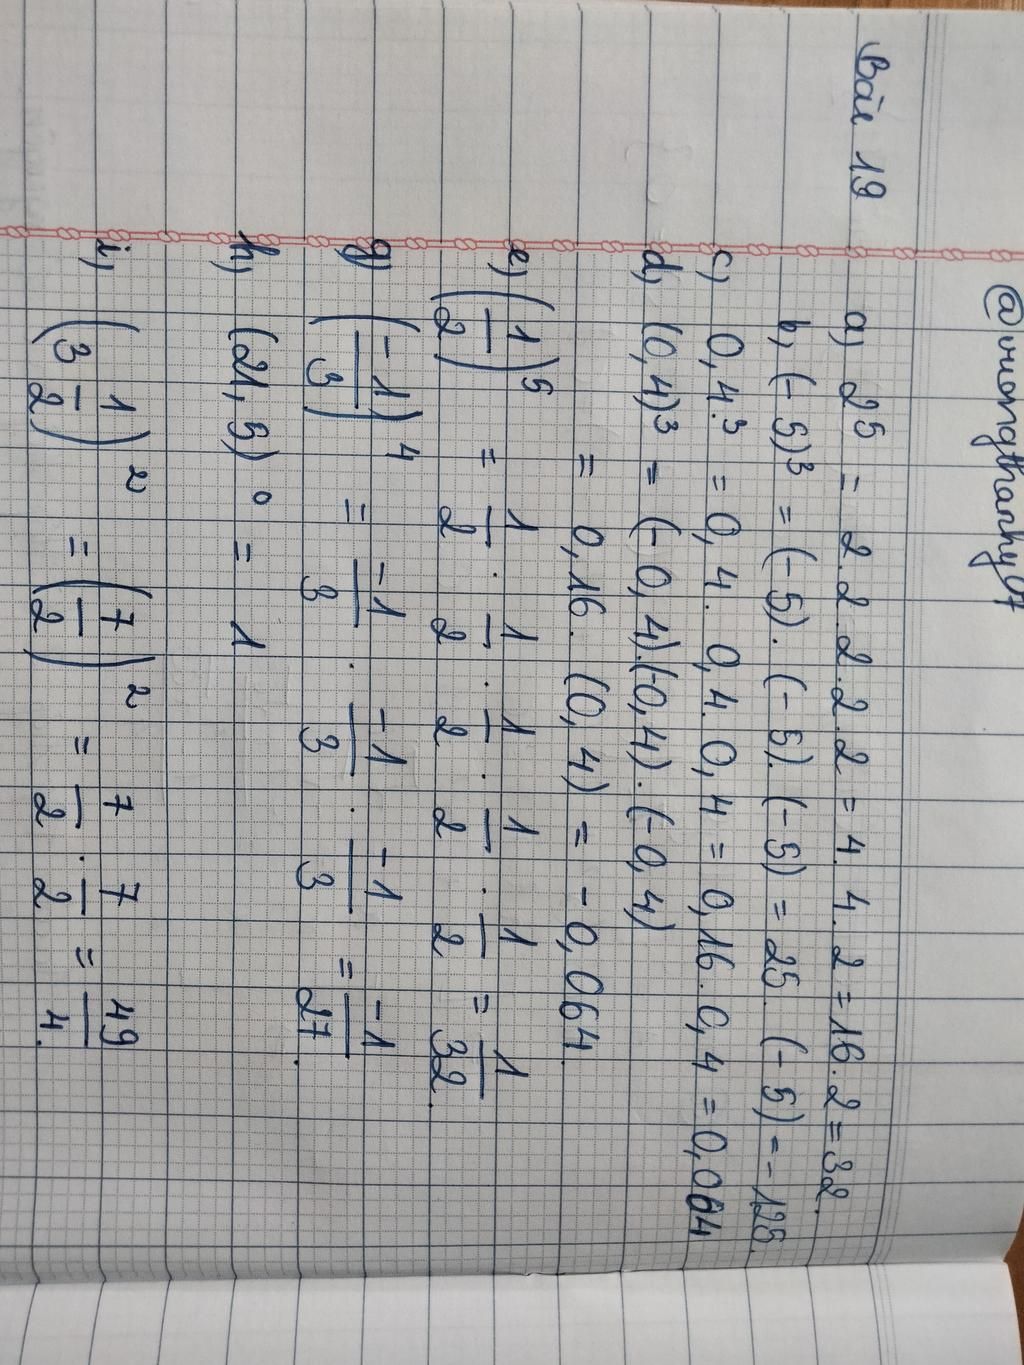 @vuongthanhy07
Bài 19
a) 2⁵ = 2.2.2.2.2 = 4.4.2 = 16.2 = 32.
b, (-5)³ = (-5).(-5).(-5) = 25.(-5) = -125.
c) 0,4.³ = 0,4.0,4.0,4 = 0,16.0,4 = 0,064
d, (0,4)³ = (-0,4).(-0,4).(-0,4)
= 0,16.(0,4) = -0,064.
e) (1/2)⁵ = 1/2 . 1/2 . 1/2 . 1/2 . 1/2 = 1/32.
g) (-1/3)⁴ = -1/3 . -1/3 . -1/3 = -1/27.
h, (21,5)⁰ = 1
i, (3 1/2)² = (7/2)² = 7/2 . 7/2 = 49/4.